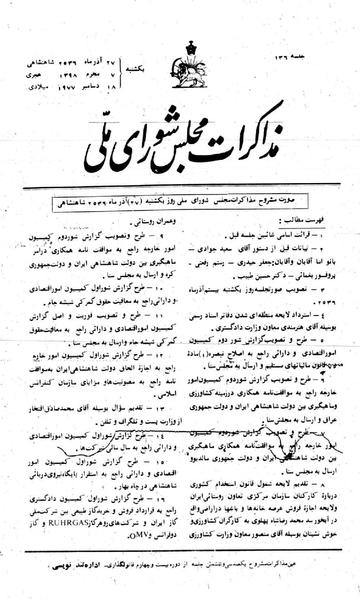 جلسه ۱۳۶
یکشنبه
۲۷ آذر ماه ۲۵۳۶ شاهنشاهی
۷ محرم ۱۳۹۸ هجری
۱۸ دسامبر ۱۹۷۷ میلادی
مذاکرات مجلس شورای ملی
صورت مشروح مذاکرات مجلس شورای ملی روز یکشنبه (۲۷) آذر ماه ۲۵۳۶ شاهنشاهی
فهرست مطالب :
۱ - قرائت اسامی غائبین جلسه قبل .
۲ - بیانات قبل از دستور آقای سعید جوادی -
بانو اما آقایان وآقایان : جعفر حیدری - رستم رفعتی -
پروفسور یغمائی - دکتر حسین طبیب .
۳ - تصویب صورتجلسه روز یکشنبه بیستم آذر ماه
۲۵۳۶ .
۴ - استرداد لایحه منطقه‌ای شدن دفاتر اسناد رسمی
بوسیله آقای هنرمندی معاون وزارت دادگستری .
۵ - طرح و تصویب گزارش شور دوم کمیسیون
امور اقتصادی و دارائی راجع به اصلاح تبصره (۱) ماده
قانون مالیاتهای مستقیم و ارسال به مجلس سنا .
طرح و تصویب گزارش شور دوم کمیسیون امور
خارجه راجع به موافقت نامه همکاری در زمینه کشاورزی
و ماهیگیری بین دولت شاهنشاهی ایران و دولت جمهوری
عراق و ارسال به مجلس سنا .
طرح و تصویب گزارش شور دوم کمیسیون
امور خارجه راجع به موافقت نامه همکاری ماهیگیری
بین دولت شاهنشاهی ایران و دولت جمهوری مالدیو و
ارسال به مجلس سنا .
۸ - تقدیم لایحه شمول قانون استخدام کشوری
دربارهٔ کارکنان سازمان مرکزی تعاون روستائی ایران
و لایحه اجازهٔ فروش عرصه خانه‌ها و باغها در اراضی واقع
در آبخور سد محمد رضا شاه پهلوی به کارگران کشاورزی و
خوش نشینان بوسیله آقای منصور معاون وزارت کشاورزی
و عمران روستائی .
۹ - طرح و تصویب گزارش شور دوم کمیسیون
امور خارجه راجع به موافقت نامه همکاری
ماهیگیری بین دولت شاهنشاهی ایران و دولت جمهوری
کره و ارسال به مجلس سنا .
۱۰ - طرح گزارش شور اول کمیسیون امور اقتصادی
و دارائی راجع به معافیت حقوق گمرکی شیشه جام .
۱۱ - طرح و تصویب فوریت و اصل گزارش
کمیسیون امور اقتصادی و دارائی راجع به معافیت حقوق
گمرکی شیشه جام و ارسال به مجلس سنا .
۱۲ - طرح گزارش شور اول کمیسیون امور خارجه
راجع به اجازهٔ الحاق دولت شاهنشاهی ایران به موافقت
نامه راجع به مصونیتها و مزایای سازمان کنفرانس
اسلامی .
۱۳ - تقدیم سؤال بوسیله آقای محمد صادق افتخار
از وزارت پست و تلگراف و تلفن .
۱۴ - طرح گزارش شور اول کمیسیون امور اقتصادی
و دارائی راجع به سال مالی شرکت‌ها .
۱۵ - طرح گزارش شور اول کمیسیون امور
اقتصادی و دارائی راجع به استقرار پایگاه نیروی دریائی
شاهنشاهی در چاه بهار .
۱۶ - طرح گزارش شور اول کمیسیون دادگستری
راجع به قرارداد فروش و خرید گاز طبیعی بین شرکت ملی
گاز ایران و شرکت‌های روهرگاز RUHRGAS و گاز
دوفرانس و ÖMV .
عین مذاکرات مشروح یکصد و سی و ششمین جلسه از دوره بیست و چهارم قانونگذاری . اداره تند نویسی